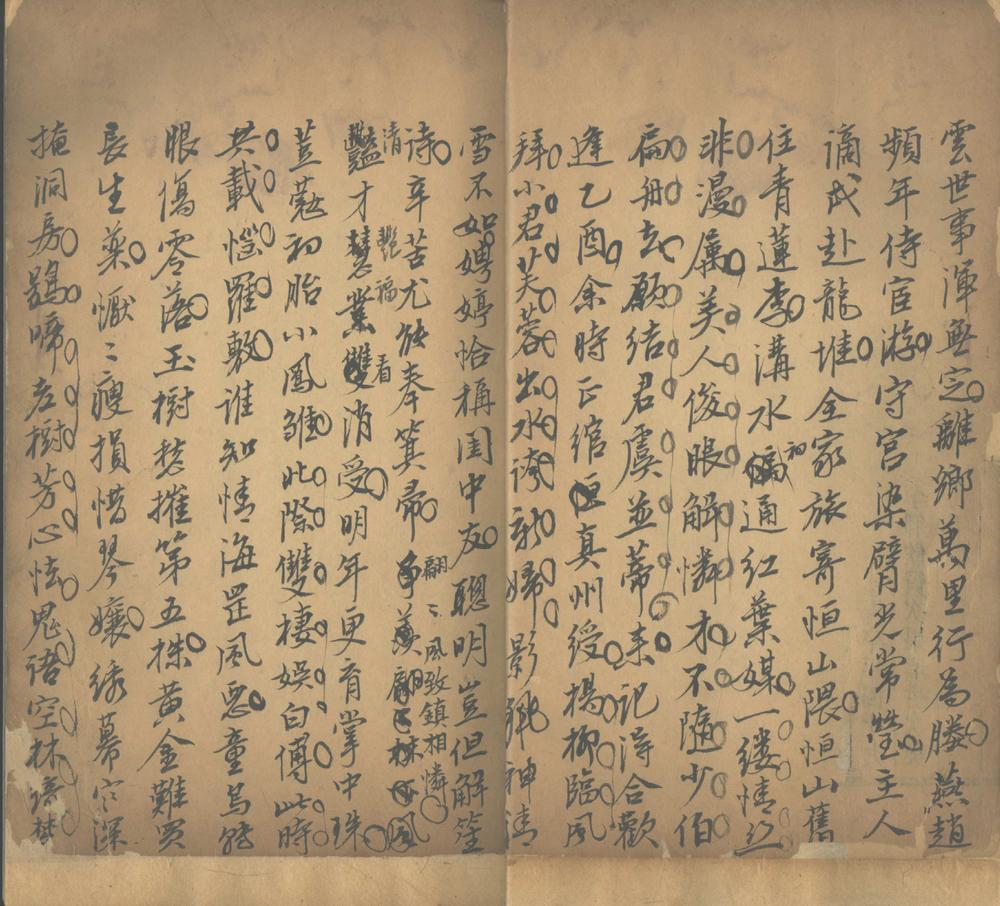 雲世事渾無定離鄉萬里行為媵燕趙
頻年侍宦游守宮染臂光常瑩主人
謫戍赴龍堆全家旅寄恒山隈恒山舊
住青蓮李溝水初通紅葉媒一縷情絲
非漫屬美人俊眼解憐才不隨少伯
扁舟去願結君虞並蒂來記得合歡
逢乙酉余時正綰真州綬楊柳臨風
拜小君芙蓉出水誇新婦影神清
雪不如娉婷恰稱閨中友聰明豈但解筌
詩辛苦尤能奉箕帚翩〻風致鎮相憐
清才豔福看雙消受明年更育掌中珠
荳蔻初胎小鳳雛此際雙棲娛白傅此時
共載惱羅敷誰知情海罡風惡童烏
眼傷零落玉樹愁摧第五株黃金難買
長生藥懨〻瘦損惜琴孃綉幕宮深
掩洞房鵑啼老樹芳心怯鬼語空林